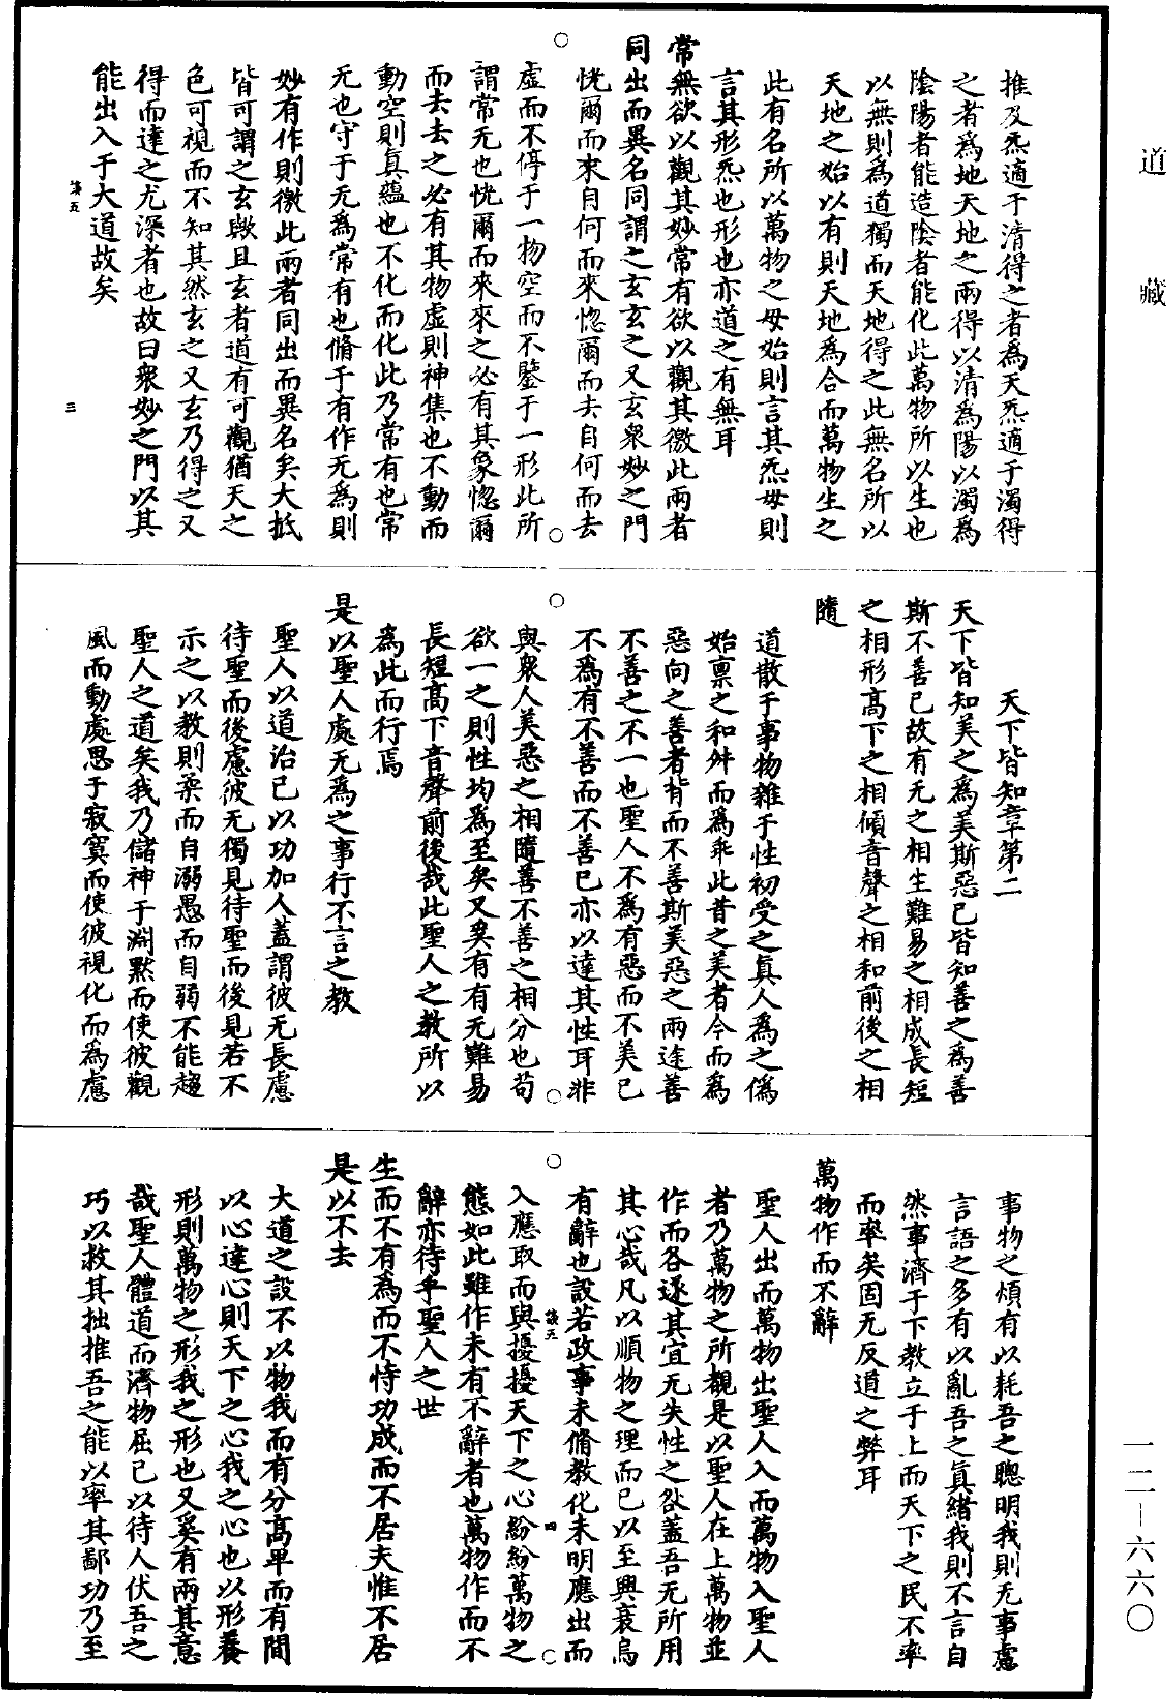 道藏
推及炁適于清得之者為天炁適于濁得
之者為地天地之兩得以清為陽以濁為
陰陽者能造陰者能化此萬物所以生也
以無則為道獨而天地得之此無名所以
天地之始以有則天地為合而萬物生之
此有名所以萬物之母始則言其炁母則
言其形炁也形也亦道之有無耳
常無欲以觀其妙常有欲以觀其徼此兩者
同出而異名同謂之玄玄之又玄衆妙之門
恍爾而來自何而來惚爾而去自何而去
虛而不停于一物空而不鑒于一形此所
謂常无也恍爾而來來之必有其象惚爾
而去去之必有其物虛則神集也不動而
動空則真蘊也不化而化此乃常有也常
无也守于无為常有也脩于有作无為則
妙有作則徼此兩者同出而異名矣大抵
皆可謂之玄歟且玄者道有可觀猶天之
色可視而不知其然玄之又玄乃得之又
得而達之尤深者也故曰衆妙之門以其
能出入于大道故矣
三
天下皆知章第二
天下皆知美之為美斯惡已皆知善之為善
斯不善已故有无之相生難易之相成長短
之相形高下之相傾音聲之相和前後之相
隨
道散于事物雜于性初受之真人為之偽
始禀之和舛而為乖此昔之美者今而為
惡向之善者背而不善斯美惡之兩途善
不善之不一也聖人不為有惡而不美已
不為有不善而不善已亦以達其性耳非
與衆人美惡之相隨善不善之相分也苟
欲一之則性均為至矣又奚有有无難易
長短高下音聲前後哉此聖人之教所以
為此而行焉
是以聖人處无為之事行不言之教
聖人以道治已以功加人蓋謂彼无長慮
待聖而後慮彼无獨見待聖而後見若不
示之以教則柔而自溺愚而自弱不能趨
聖人之道矣我乃儲神于淵默而使彼觀
風而動處思于寂寞而使彼視化而為慮
事物之煩有以耗吾之聰明我則无事處
言語之多有以亂吾之真緒我則不言自
然事濟于下教立于上而天下之民不率
而率矣固无反道之弊耳
萬物作而不辭
聖人出而萬物出聖人入而萬物入聖人
者乃萬物之所覩是以聖人在上萬物並
作而各遂其宜无失性之咎蓋吾无所用
其心哉凡以順物之理而已以至興衰烏
有辭也設若政事未脩教化未明應出而
入應取而與擾擾天下之心紛紛萬物之
態如此雖作未有不辭者也萬物作而不
辭亦待乎聖人之世
四
生而不有為而不恃功成而不居夫惟不居
是以不去
大道之設不以物我而有分高卑而有間
以心達心則天下之心我之心也以形養
形則萬物之形我之形也又奚有兩其意
哉聖人體道而濟物屈已以待人伏吾之
巧以救其拙推吾之能以率其鄙功乃至
一二—六六〇